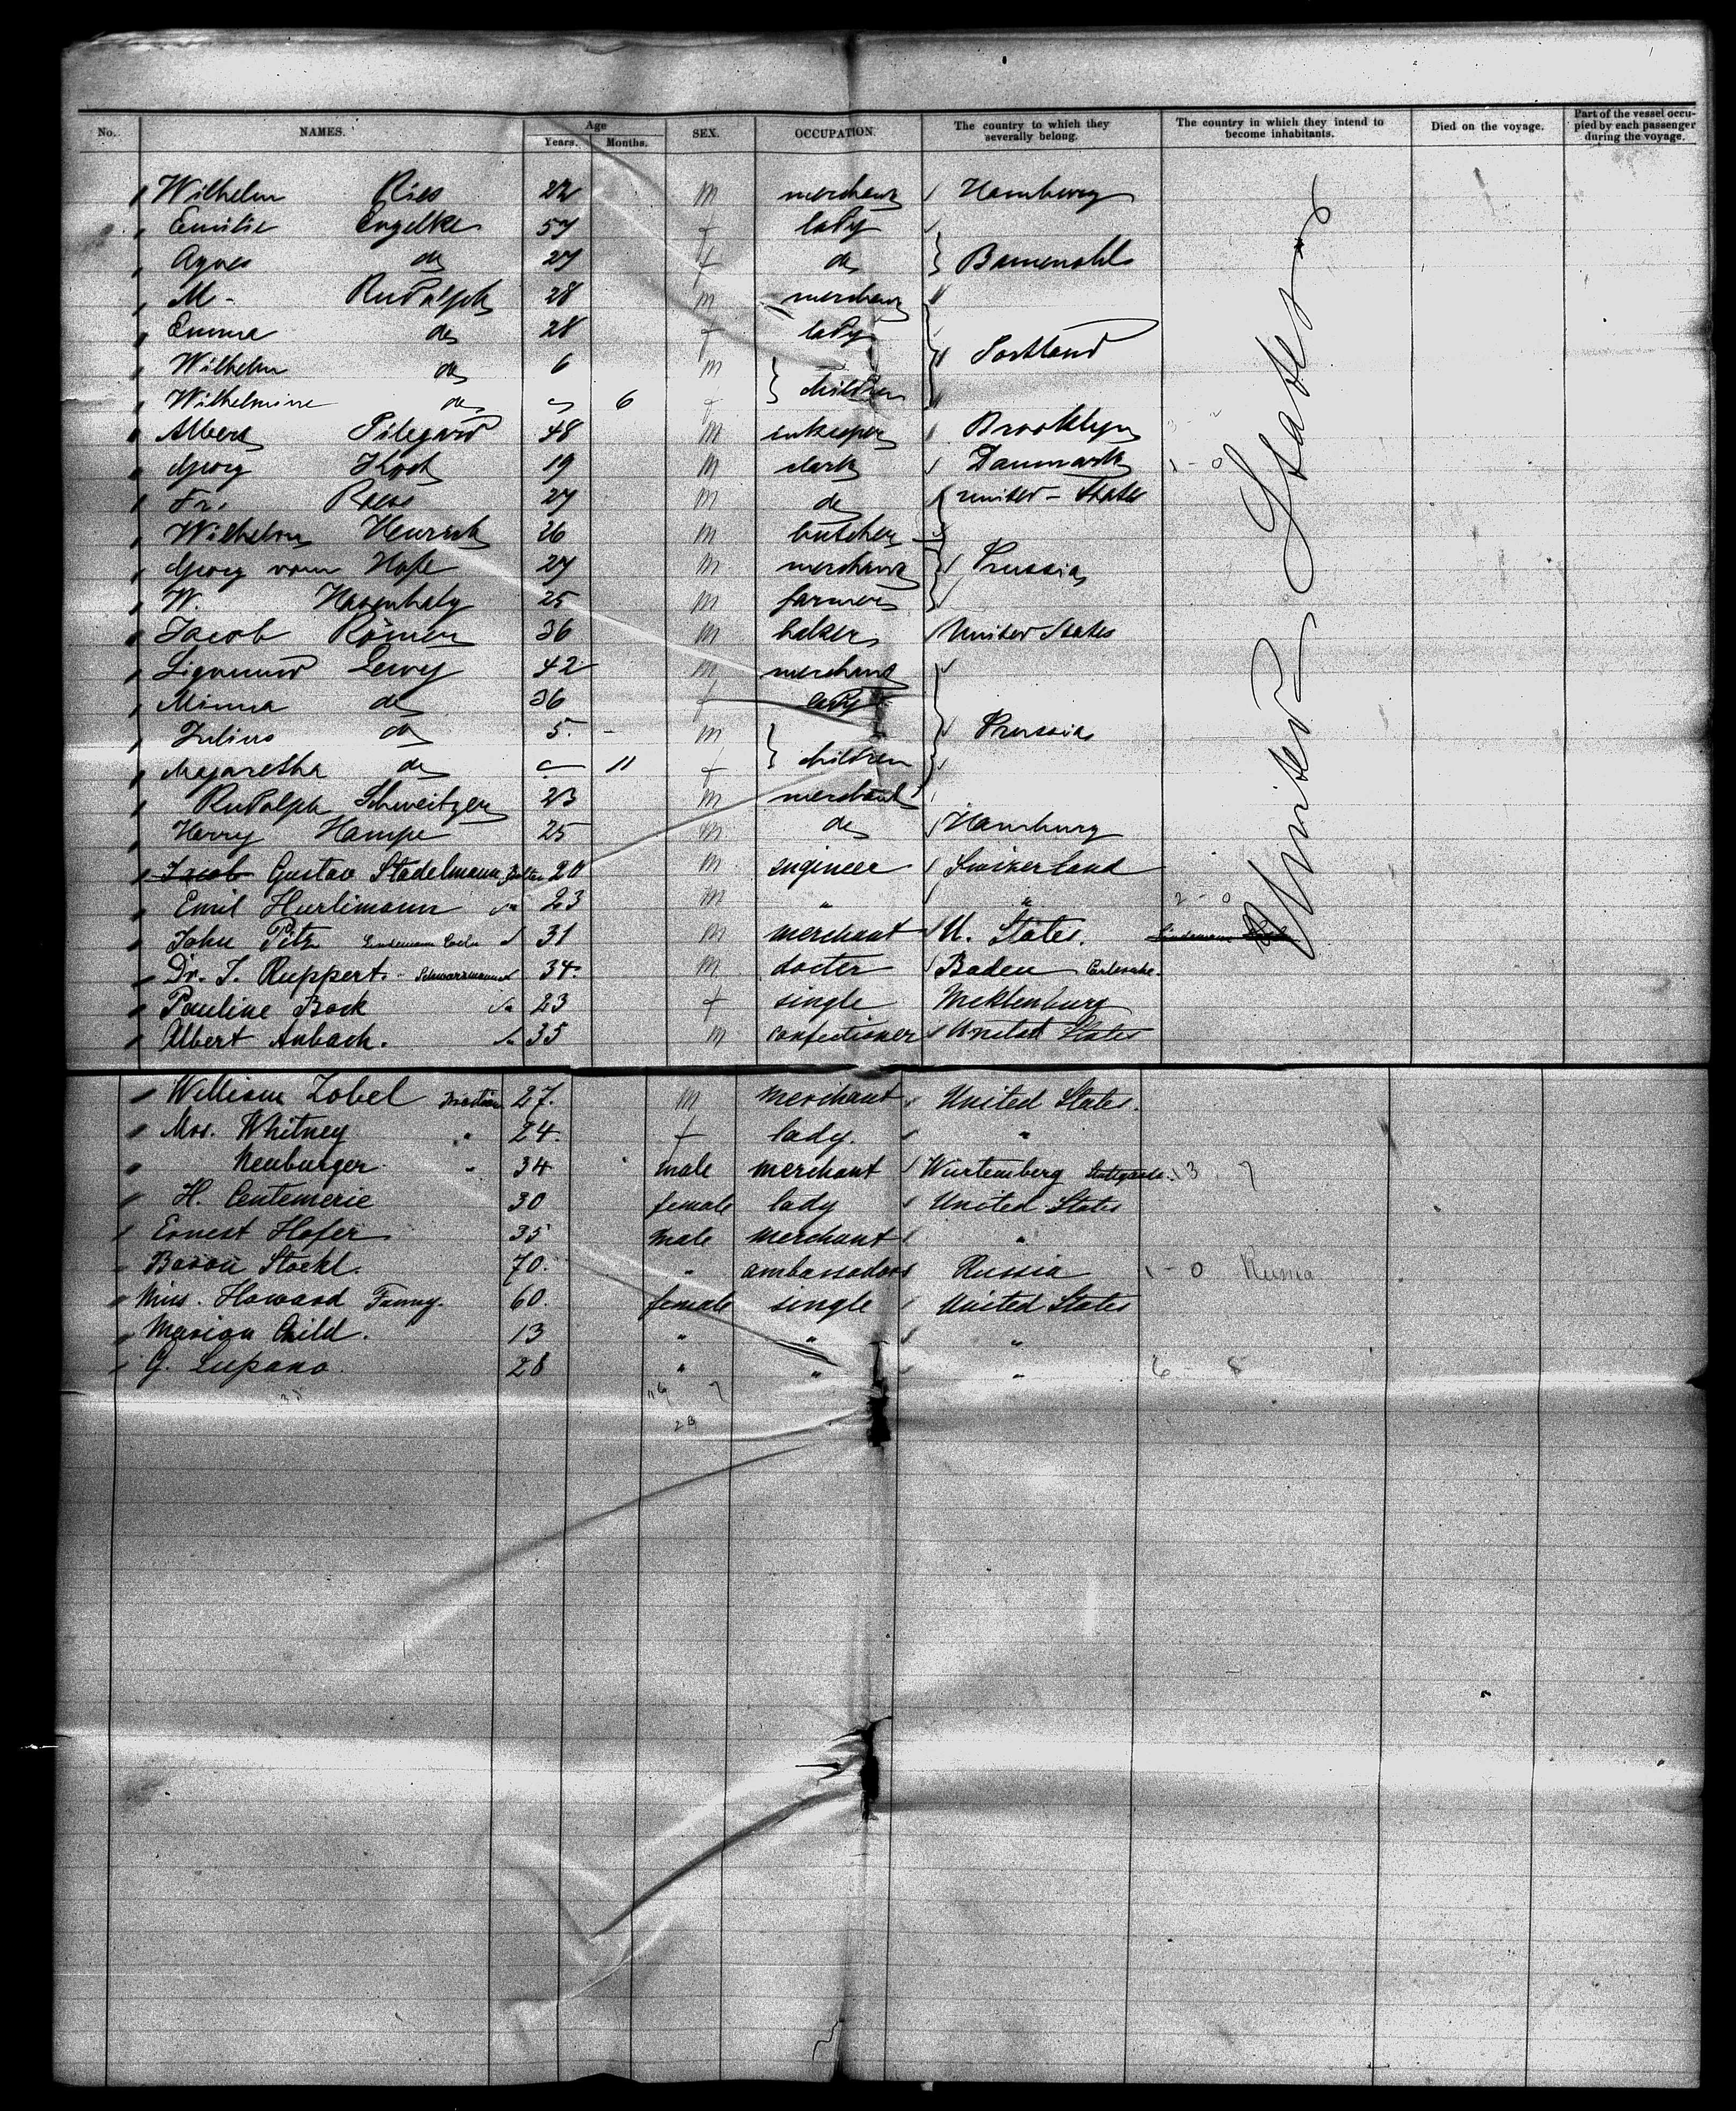 No. NAMES. Age Years. Months. SEX. OCCUPATION. The country to which they severally belong. The country in which they intend to become inhabitants. Died on the voyage. Part of the vessel occupied by each passenger during the voyage.
Wilhelm Ries 22 m merchant Hamburg
Emilie Engelke 57 f lady
Agnes do 27 f do
M. Rudolph 28 m merchant
Emma do 28 f lady
Portland
Wilhelm do 6 m
children
Wilhelmine do 6 f
Albert Pilegard 48 m inkeeper Brooklyn
Georg Koch 19 m clerk Danmark 1 - 0
Fr. 27 m do United - States
Wilhelm Heinrich 26 m butcher
Georg vom Hofe 27 m merchant Prussia
W. Hasenbalg 25 m farmer
Jacob Römer 36 m baker United States
Sigmund Levy 42 m merchant
Minna do 36 f lady
Julius do 5 - m Prussia
children
Magaretha do 11 f
Rudolph Schweitzer 23 m merchant
Harry Hampe 25 m do Hamburg
Jacob Gustav Stadelmann 20 m engineer Swizerland
Emil Hurlimann 23 m " " 2 - 0
John Pitz 31 m merchant U. States.
Dr. J. Ruppert. Schwarzmann 34. m docter Baden Carlsruhe.
Pauline Bock 23 f single Meklenburg
Albert Anbach. 35 m confectioner United States
United States
William Zobel 27. m merchant United States.
Mrs. Whitney " 24. f lady. "
Neuburger " 34 male merchant Würtemberg Stuttgardt. 3 7
H. Centemerie 30 female lady United States
Ernest Hofer 35 male merchant "
Baron Stoekl. 70. " ambassador Russia 1 - 0 Russia
Miss. Howard Fanny. 60. female single United States
Marion Child. 13 " " "
G. Lupano. 28 " " " 6 - 8